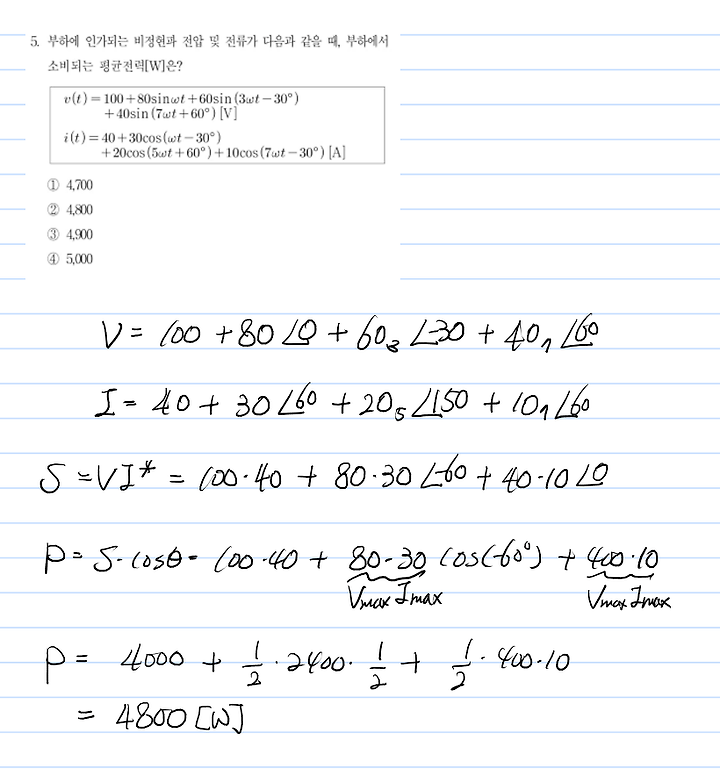 5. 부하에 인가되는 비정현파 전압 및 전류가 다음과 같을 때, 부하에서
소비되는 평균전력[W]은?
v(t)=100+80sinωt+60sin(3ωt-30°)
+40sin(7ωt+60°)[V]
i(t)=40+30cos(ωt-30°)
+20cos(5ωt+60°)+10cos(7ωt-30°)[A]
① 4,700
② 4,800
③ 4,900
④ 5,000
V = 100 + 80∠0 + 60₃∠-30 + 40₇∠60
I = 40 + 30∠60 + 20₅∠150 + 10₇∠60
S = VI* = 100·40 + 80·30∠-60 + 40·10∠0
P = S·cosθ = 100·40 + 80·30 cos(-60°) + 400·10
Vmax Imax Vmax Imax
P = 4000 + 1/2·2400·1/2 + 1/2·400·10
= 4800[W]